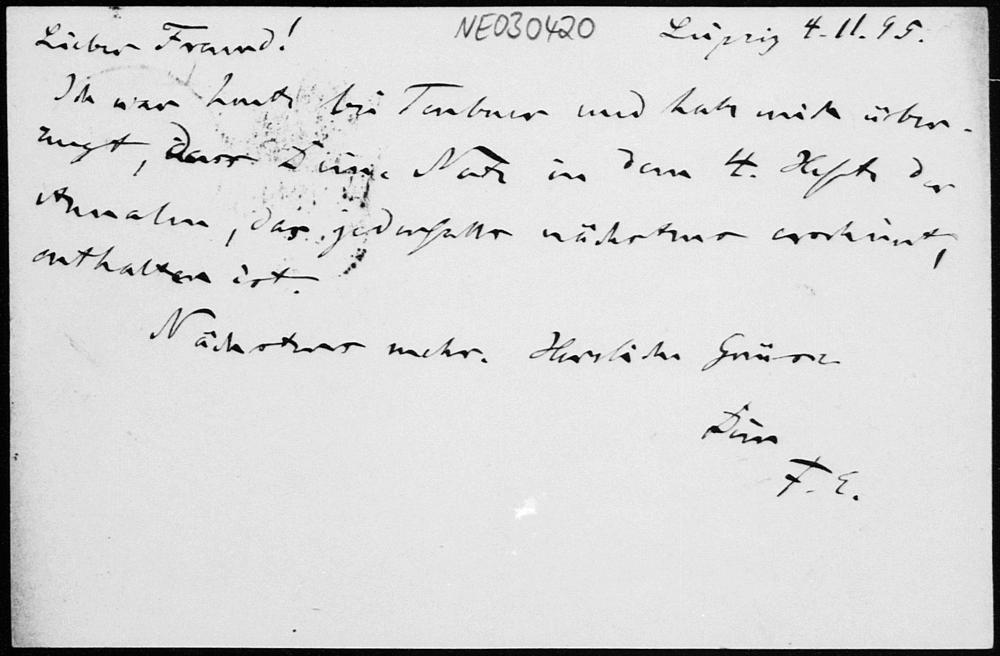 NE030420
Leipzig 4.11.95.
Lieber Freund!
Ich war heute bei Teubner und habe mich über-
zeugt, dass Deine Note in dem 4. Hefte der
Annalen, das jedenfalls nächstens erscheint,
enthalten ist.
Nächstens mehr. Herzliche Grüsse
Dein
F. E.